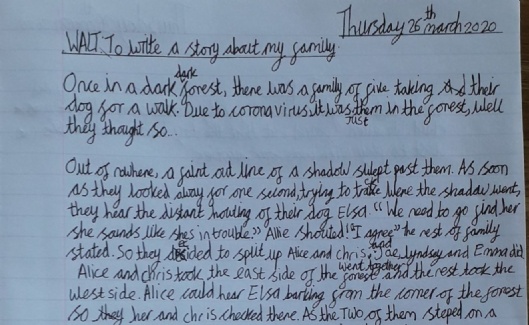 Thursday 26th march 2020
WALT: To write a story about my family.
Once in a dark dark forest, there was a family of five taking their
dog for a walk. Due to corona virus it was just them in the forest, well
they thought so...
Out of nowhere, a faint out line of a shadow swept past them. As soon
as they looked away for one second, trying to track were the shadow went,
they hear the distant howling of their dog Elsa. "We need to go find her
she sounds like she's in trouble." Allie shouted "I agree" the rest of family
stated. So they decided to split up Alice and chris, and Joe, Lyndsay and Emma did.
Alice and chris took the east side of the forest and the rest went together took the
west side. Alice could hear Elsa barking from the corner of the forest
so they her and chris checked there. As the Two of them steped on a